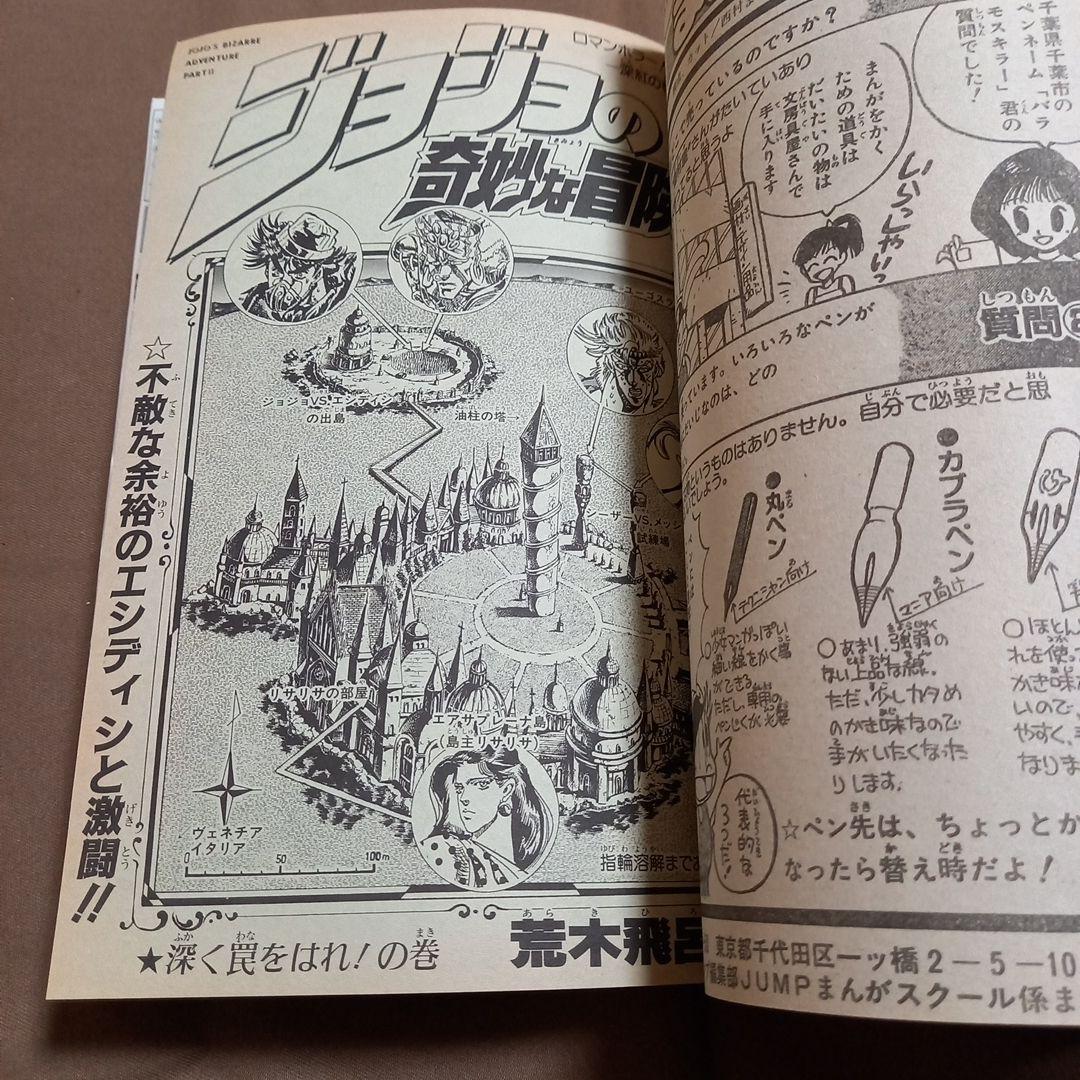 JOJO'S BIZARRE
ADVENTURE
PART II
ロマンホラー
深紅の
ジョジョの
奇妙な冒険
きみょう
☆不敵な余裕のエシディシと激闘!!
ジョジョVS.エシディシ
の出島
油柱の塔→
シーザーVS.メッシ
試練場
リサリサの部屋
エアサプレーナ島
(島主リサリサ)
ヴェネチア
イタリア
0 50 100m
指輪溶解まであ
★深く罠をはれ!の巻
荒木飛呂
千葉県千葉市の
ペンネーム「バラ
モスキラー」君の
質問でした!
っているのですか?
まんがをかく
ための道具は
だいたいの物は
文房具屋さんで
手に入ります
いらっしゃいっ
質問
いろいろなペンが
ています。
いじなのは、どの
というものはありません。自分で必要だと思
でしょう。
●丸ペン
テクニシャン向け
●カブラペン
マニア向け
○少女マンガっぽい
細い線をかく事
ができる
ただし、
○あまり、強弱の
ない上品な線。
ただ、少しカタめ
のかき味なので
手がいたくなった
りします。
○ほとん
れを使っ
かき味
いので、
やすく、
なりま
代表的な
3つだ!
☆ペン先は、ちょっとか
なったら替え時だよ!
東京都千代田区一ッ橋2—5—10
編集部JUMPまんがスクール係ま